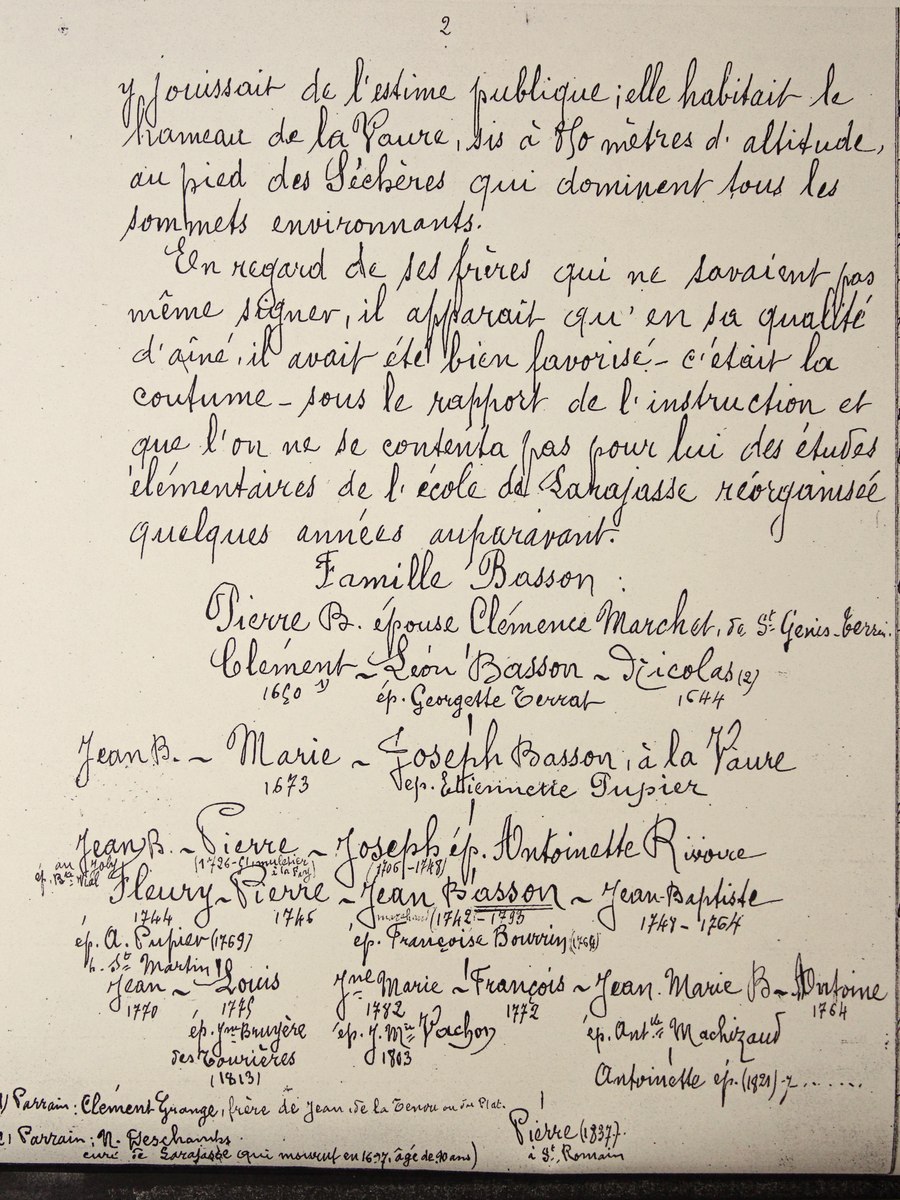 2
y jouissait de l'estime publique; elle habitait le
hameau de la Vaure, sis à 850 mètres d'altitude,
au pied des Séchères qui dominent tous les
sommets environnants.
En regard de ses frères qui ne savaient pas
même signer, il apparait qu'en sa qualité
d'aîné, il avait été bien favorisé - c'était la
coutume - sous le rapport de l'instruction et
que l'on ne se contenta pas pour lui des études
élémentaires de l'école de Larajasse réorganisée
quelques années auparavant.
Famille Basson :
Pierre B. épouse Clémence Marchet, de St Genis-Terrin.
Clément ~ Léon Basson ~ Nicolas (2)
1650 1) ép. Georgette Terrat 1644
Jean B. ~ Marie ~ Joseph Basson, à la Vaure
1673 ép. Etiennette Pupier
Jean B. ~ Pierre ~ Joseph ép. Antoinette Rivoire
(1706-1748)
Fleury - Pierre - Jean Basson - Jean-Baptiste
1744 1746 marchand (1742 - 1793 1747 - 1764
ép. A. Pupier (1769) ép. Françoise Bourrin
St Martin
Jean ~ Louis Jne Marie - François ~ Jean Marie B - Antoine
1770 1775 1782 1772 1764
ép. Jne Bruyère ép. J. Mie Vachon ép. Antte Machizaud
des Tourières 1803
(1813) Antoinette ép. (1821) 7.......
1) Parrain: Clément Grange, frère de Jean, de la Tenou ou du Plat.
Pierre (1837)
2) Parrain: N. Deschamps
à St Romain
curé de Larajasse qui mourut en 1697, âgé de 90 ans)